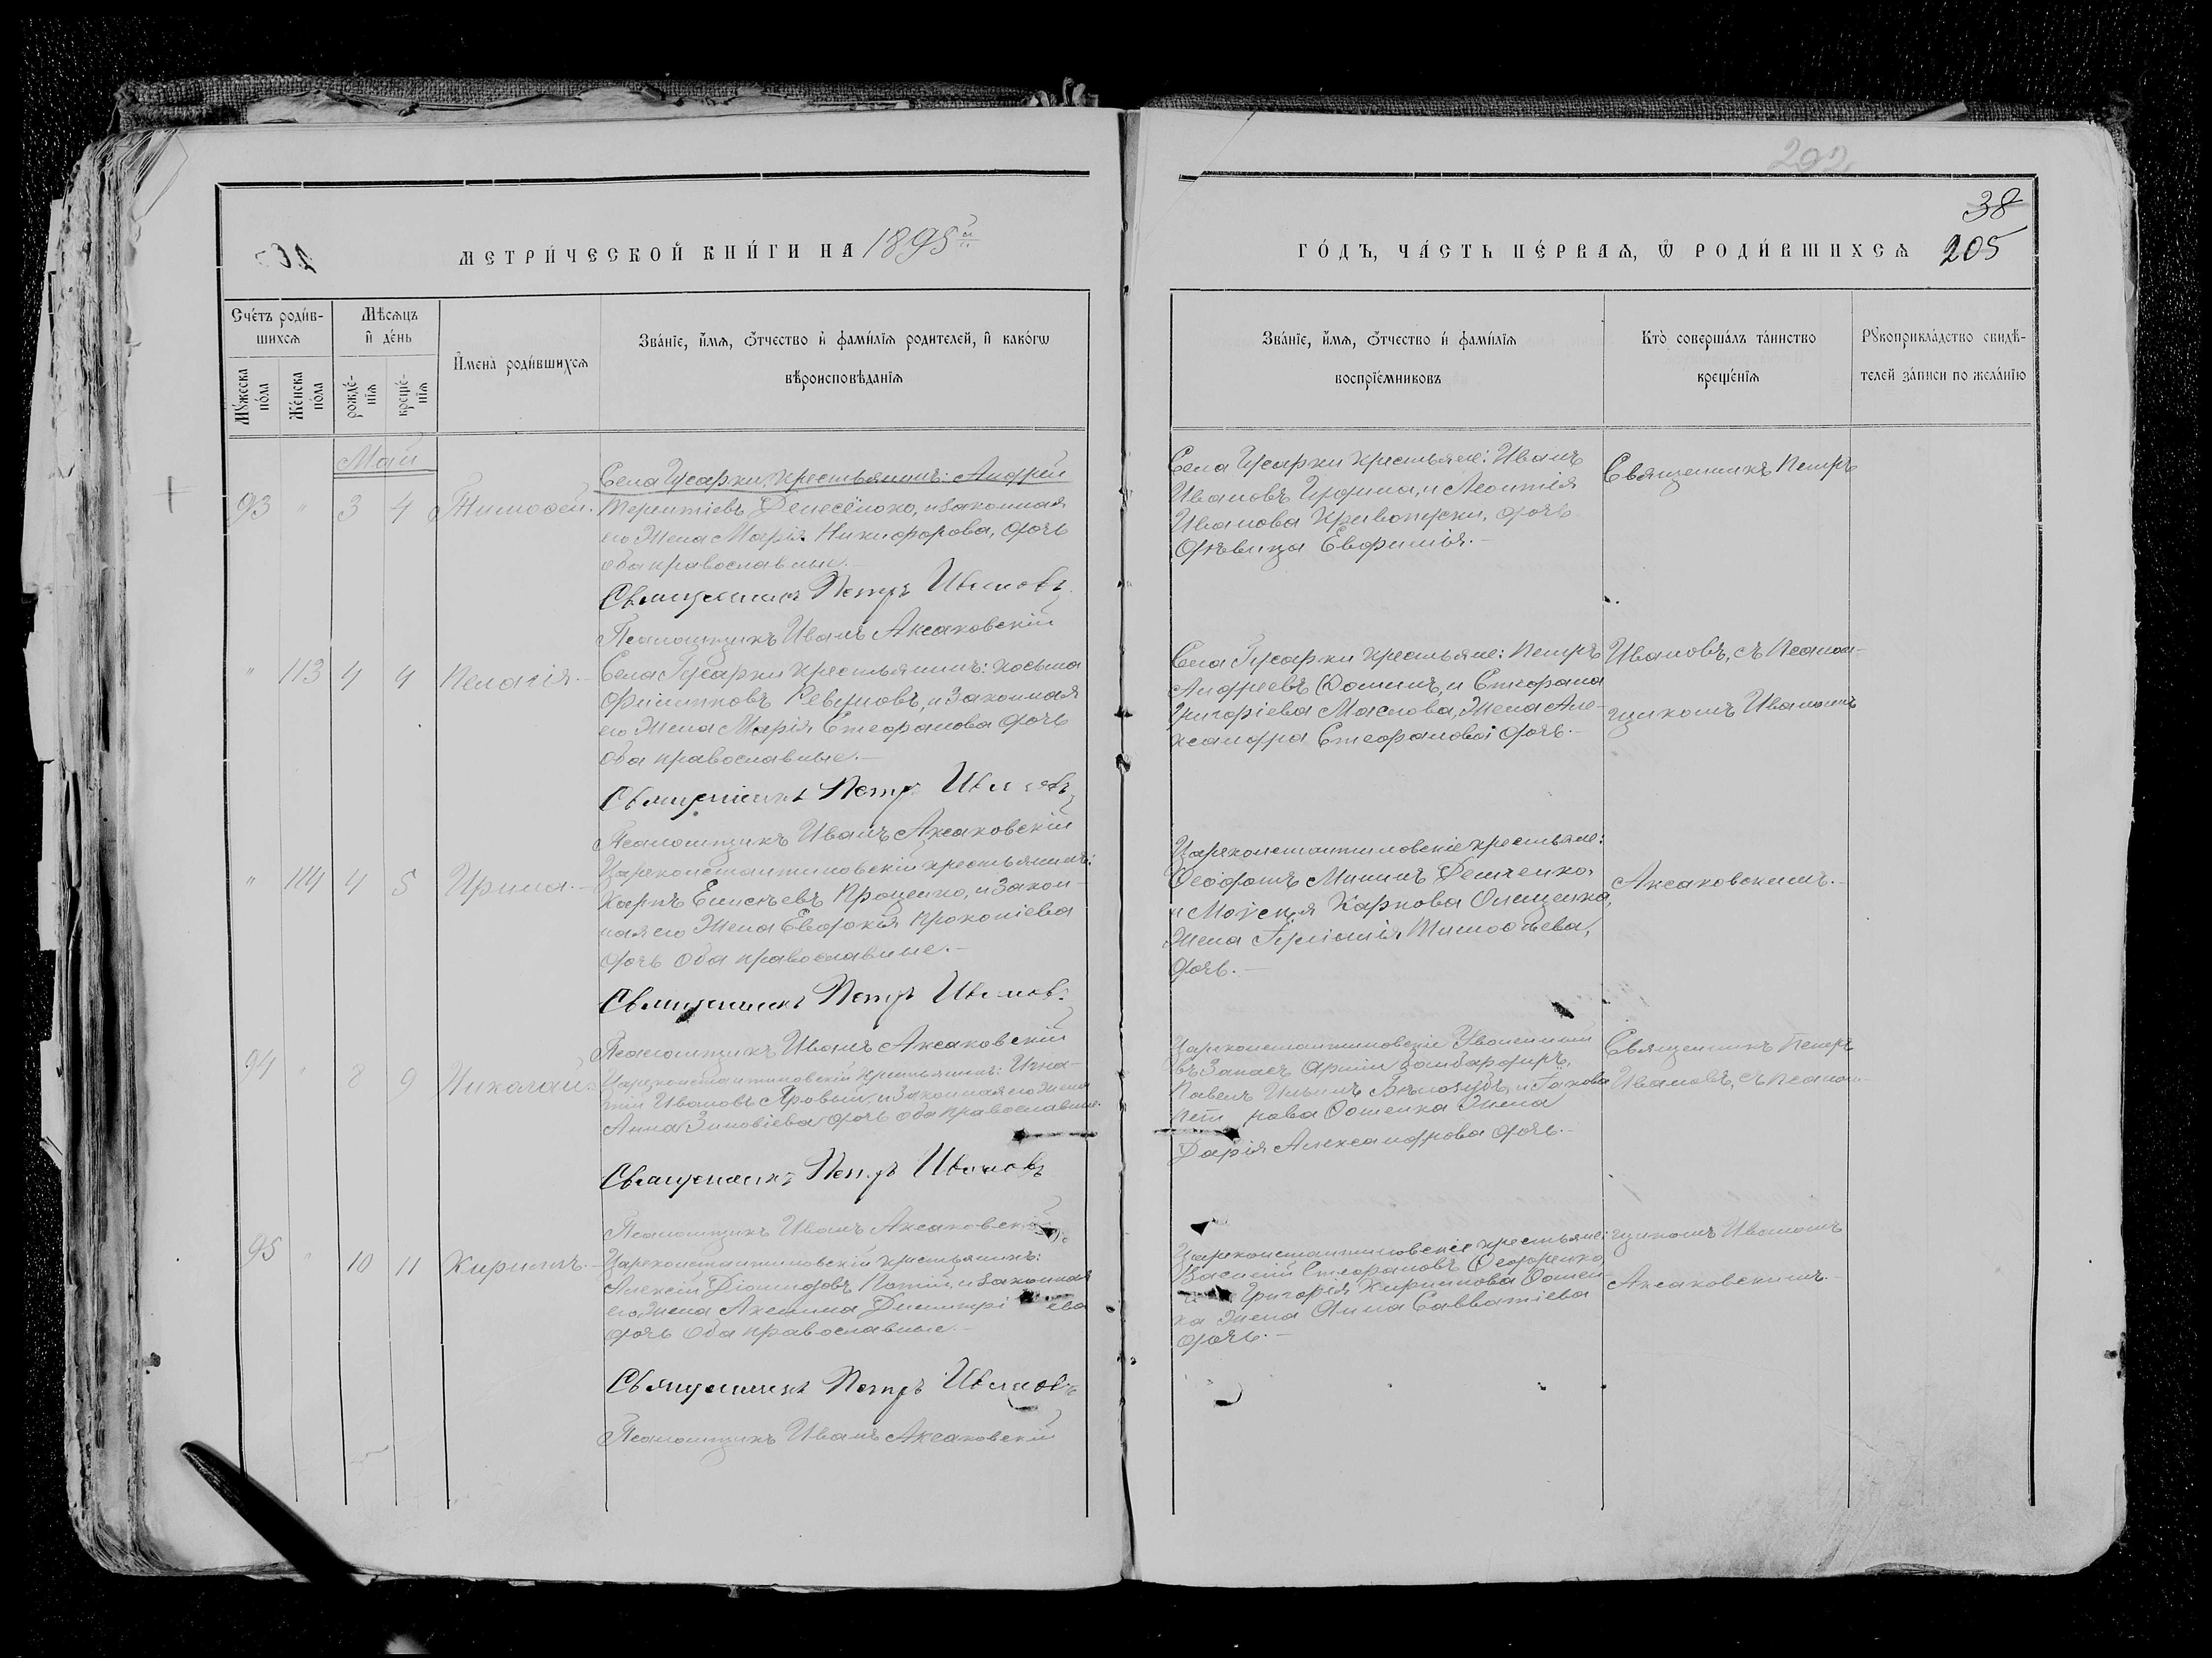 202
38
205
МЕТРИ́ЧЕСКОЙ КНИ́ГИ НА 1895й
ГО́ДЪ, ЧА́СТЬ ПЕ́РВАѦ, Ѿ РОДИ́ВШИХСѦ
Сче́тъ роди́в-
шихсѧ
Мꙋ́жеска по́ла
Же́нска по́ла
Мѣ́сѧцъ
и҆ де́нь
рожде́-
нїѧ
креще́-
нїѧ
И҆мена̀ роди́вшихсѧ
Зва́нїе, и҆́мѧ, ѻ҆́тчество и҆ фами́лїѧ родителей, и҆ како́гѡ
вѣроисповѣ́данїѧ
Зва́нїе, и҆́мѧ, ѻ҆́тчество и҆ фами́лїѧ
воспрїе́мниковъ
Кто̀ соверша́лъ та́инство
креще́нїѧ
Рꙋкоприкла́дство свидѣ́-
телей за́писи по жела́нїю
Май
93 " 3 4 Тимоѳей.
Села Гусарки крестьянинъ: Андрей
Терентіевъ, и законная
его жена Марія Никифорова, дочь
оба православные.
Священникъ Петръ Ивановъ
Псаломщикъ Иванъ Аксаковскій
Села Гусарки крестьяне: Иванъ
Ивановъ, и Леонтія
Иванова Кривопуски, дочь
дѣвица Евфимія.
Священникъ Петръ
" 113 4 4 Пелагія.
Села Гусарки крестьянинъ: Косьма
Филипповъ, и законная
его жена Марія Стефанова дочь
оба православные.
Священникъ Петръ Ивановъ
Псаломщикъ Иванъ Аксаковскій
Села Гусарки крестьяне: Петръ
Андреевъ Ѳоминъ, и Стефана
Григоріева Маслова, жена Але-
ксандра Стефановой дочь.
Ивановъ, съ Псалом-
щикомъ Иваномъ
" 114 4 5 Ирина.
Цареконстантиновскій крестьянинъ:
Карпъ Елисѣевъ Проценко, и закон-
ная его жена Евдокія Прокопіева
дочь оба православные.
Священникъ Петръ Ивановъ
Псаломщикъ Иванъ Аксаковскій
Цареконстантиновскіе крестьяне:
Ѳеофанъ Мининъ Демченко,
и Моисея Карпова Онищенка,
жена Тимоѳѣева,
дочь.
Аксаковскимъ.
94 " 8 9 Николай
Цареконстантиновскій крестьянинъ: Игна-
тій Ивановъ Яровый, и законная его жена
Анна Зиновіева дочь оба православные.
Священникъ Петръ Ивановъ
Псаломщикъ Иванъ Аксаковскій
Цареконстантиновскіе Уволенный
въ Запасъ Арміи Бомбардиръ,
Павелъ Ильинъ Бѣлозубъ, и Іакова
Петрова Ѳоменка жена
Дарія Александрова дочь.
Священникъ Петръ
Ивановъ, съ Псалом-
95 " 10 11 Кириллъ.
Цареконстантиновскій крестьянинъ:
Алексій Діомидовъ, и законная
его жена Акилина Димитріева
дочь оба православные.
Священникъ Петръ Ивановъ
Псаломщикъ Иванъ Аксаковскій
Цареконстантиновскіе крестьяне:
Василій Стефановъ Ѳедоренко,
Григорія Кириллова Ѳомен-
ка жена Анна Савватіева
дочь.
щикомъ Иваномъ
Аксаковскимъ.